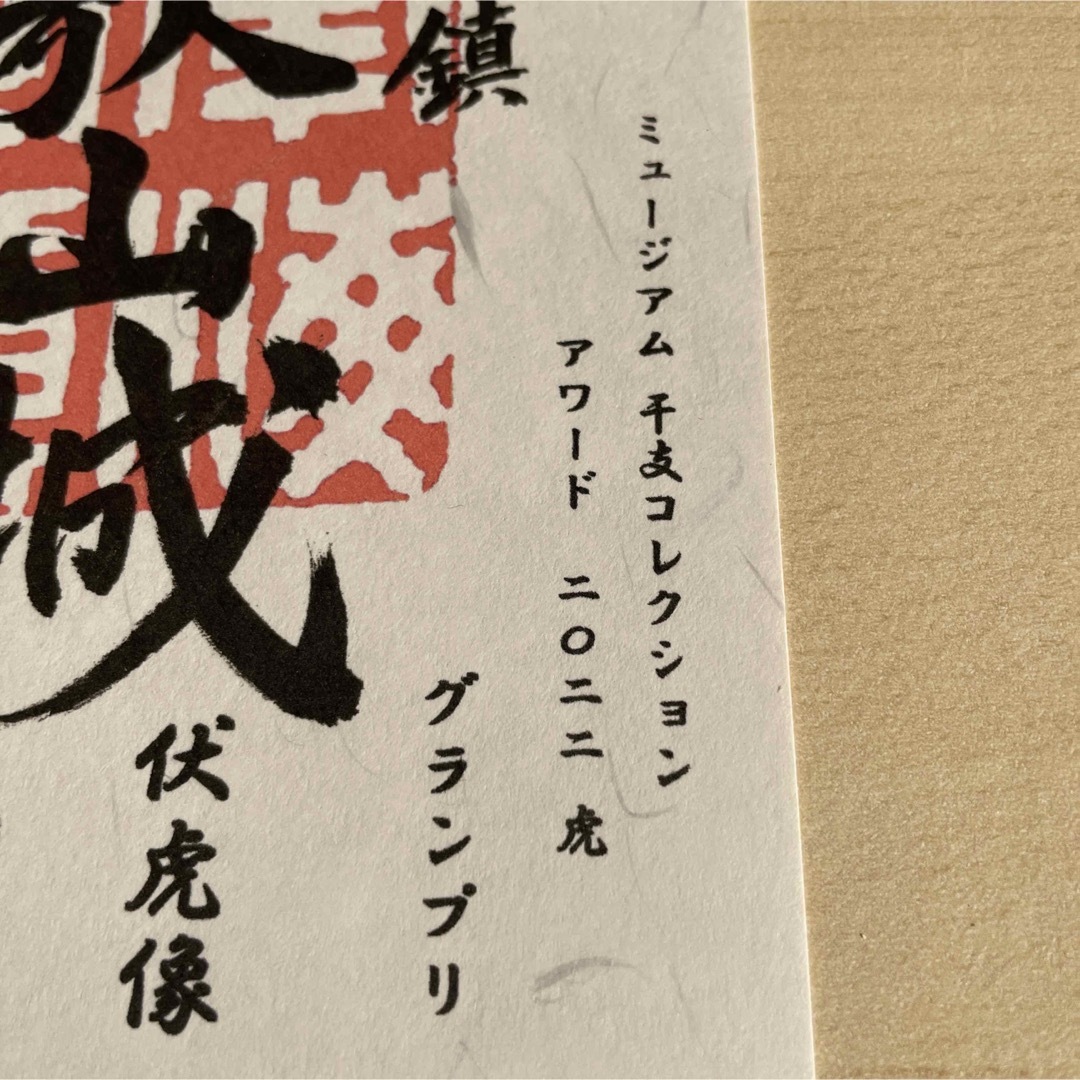 ミュージアム 干支コレクション
アワード 二〇二二 虎
グランプリ
鎮
山城
伏虎像